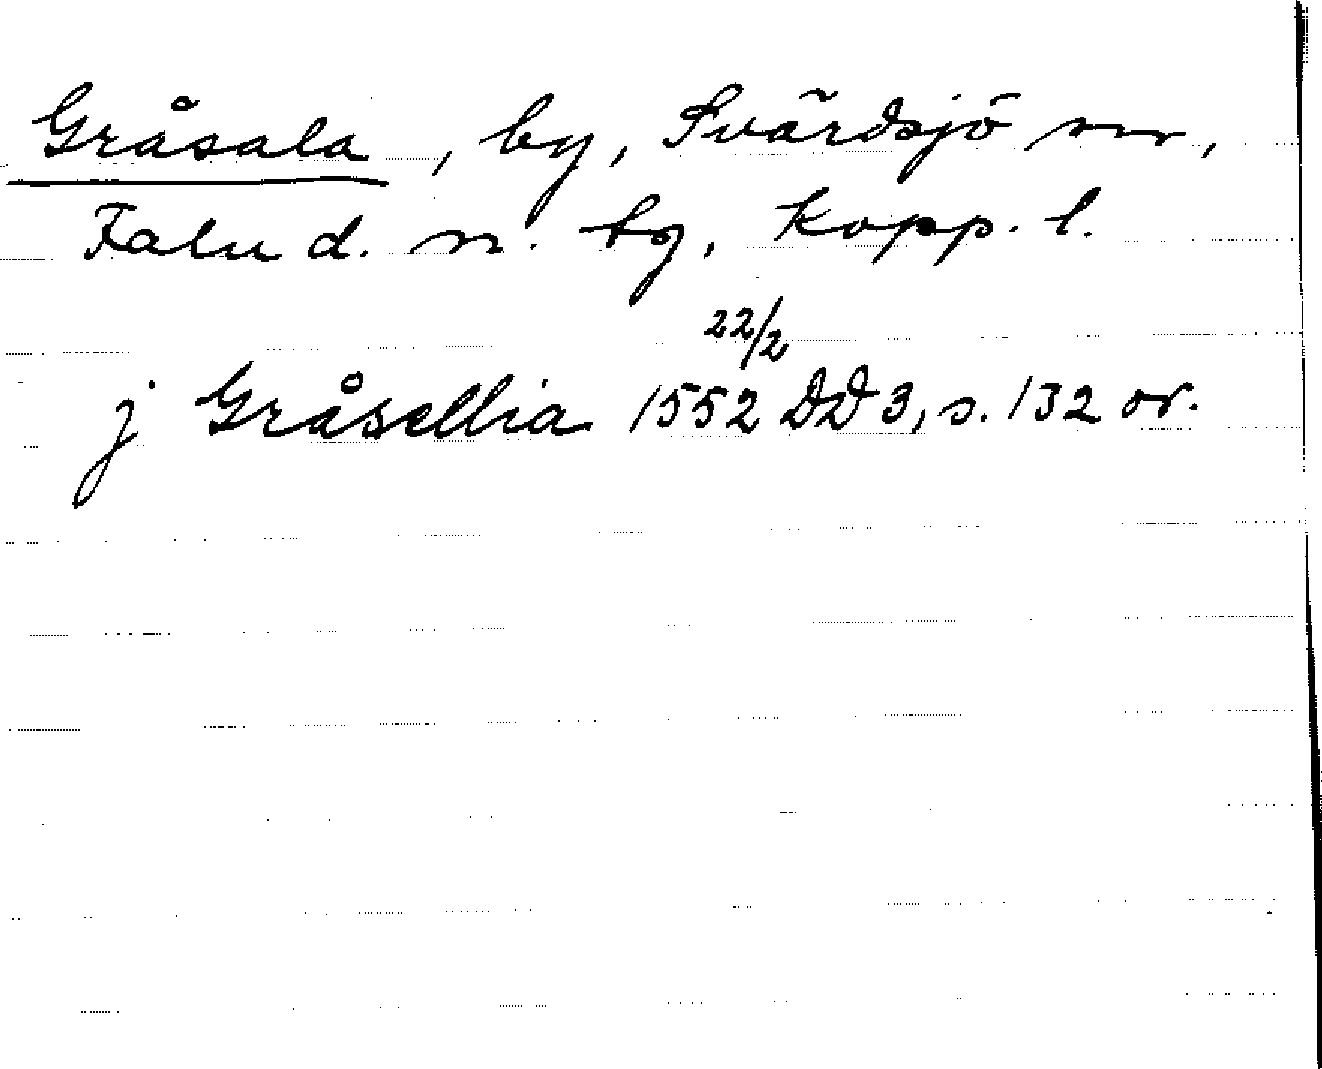 Gråsala, by, Svärdsjö sn,
Falu d. n. tg, Kopp. l.
22/2
j Gråsellia 1552 DD 3, s. 132 or.